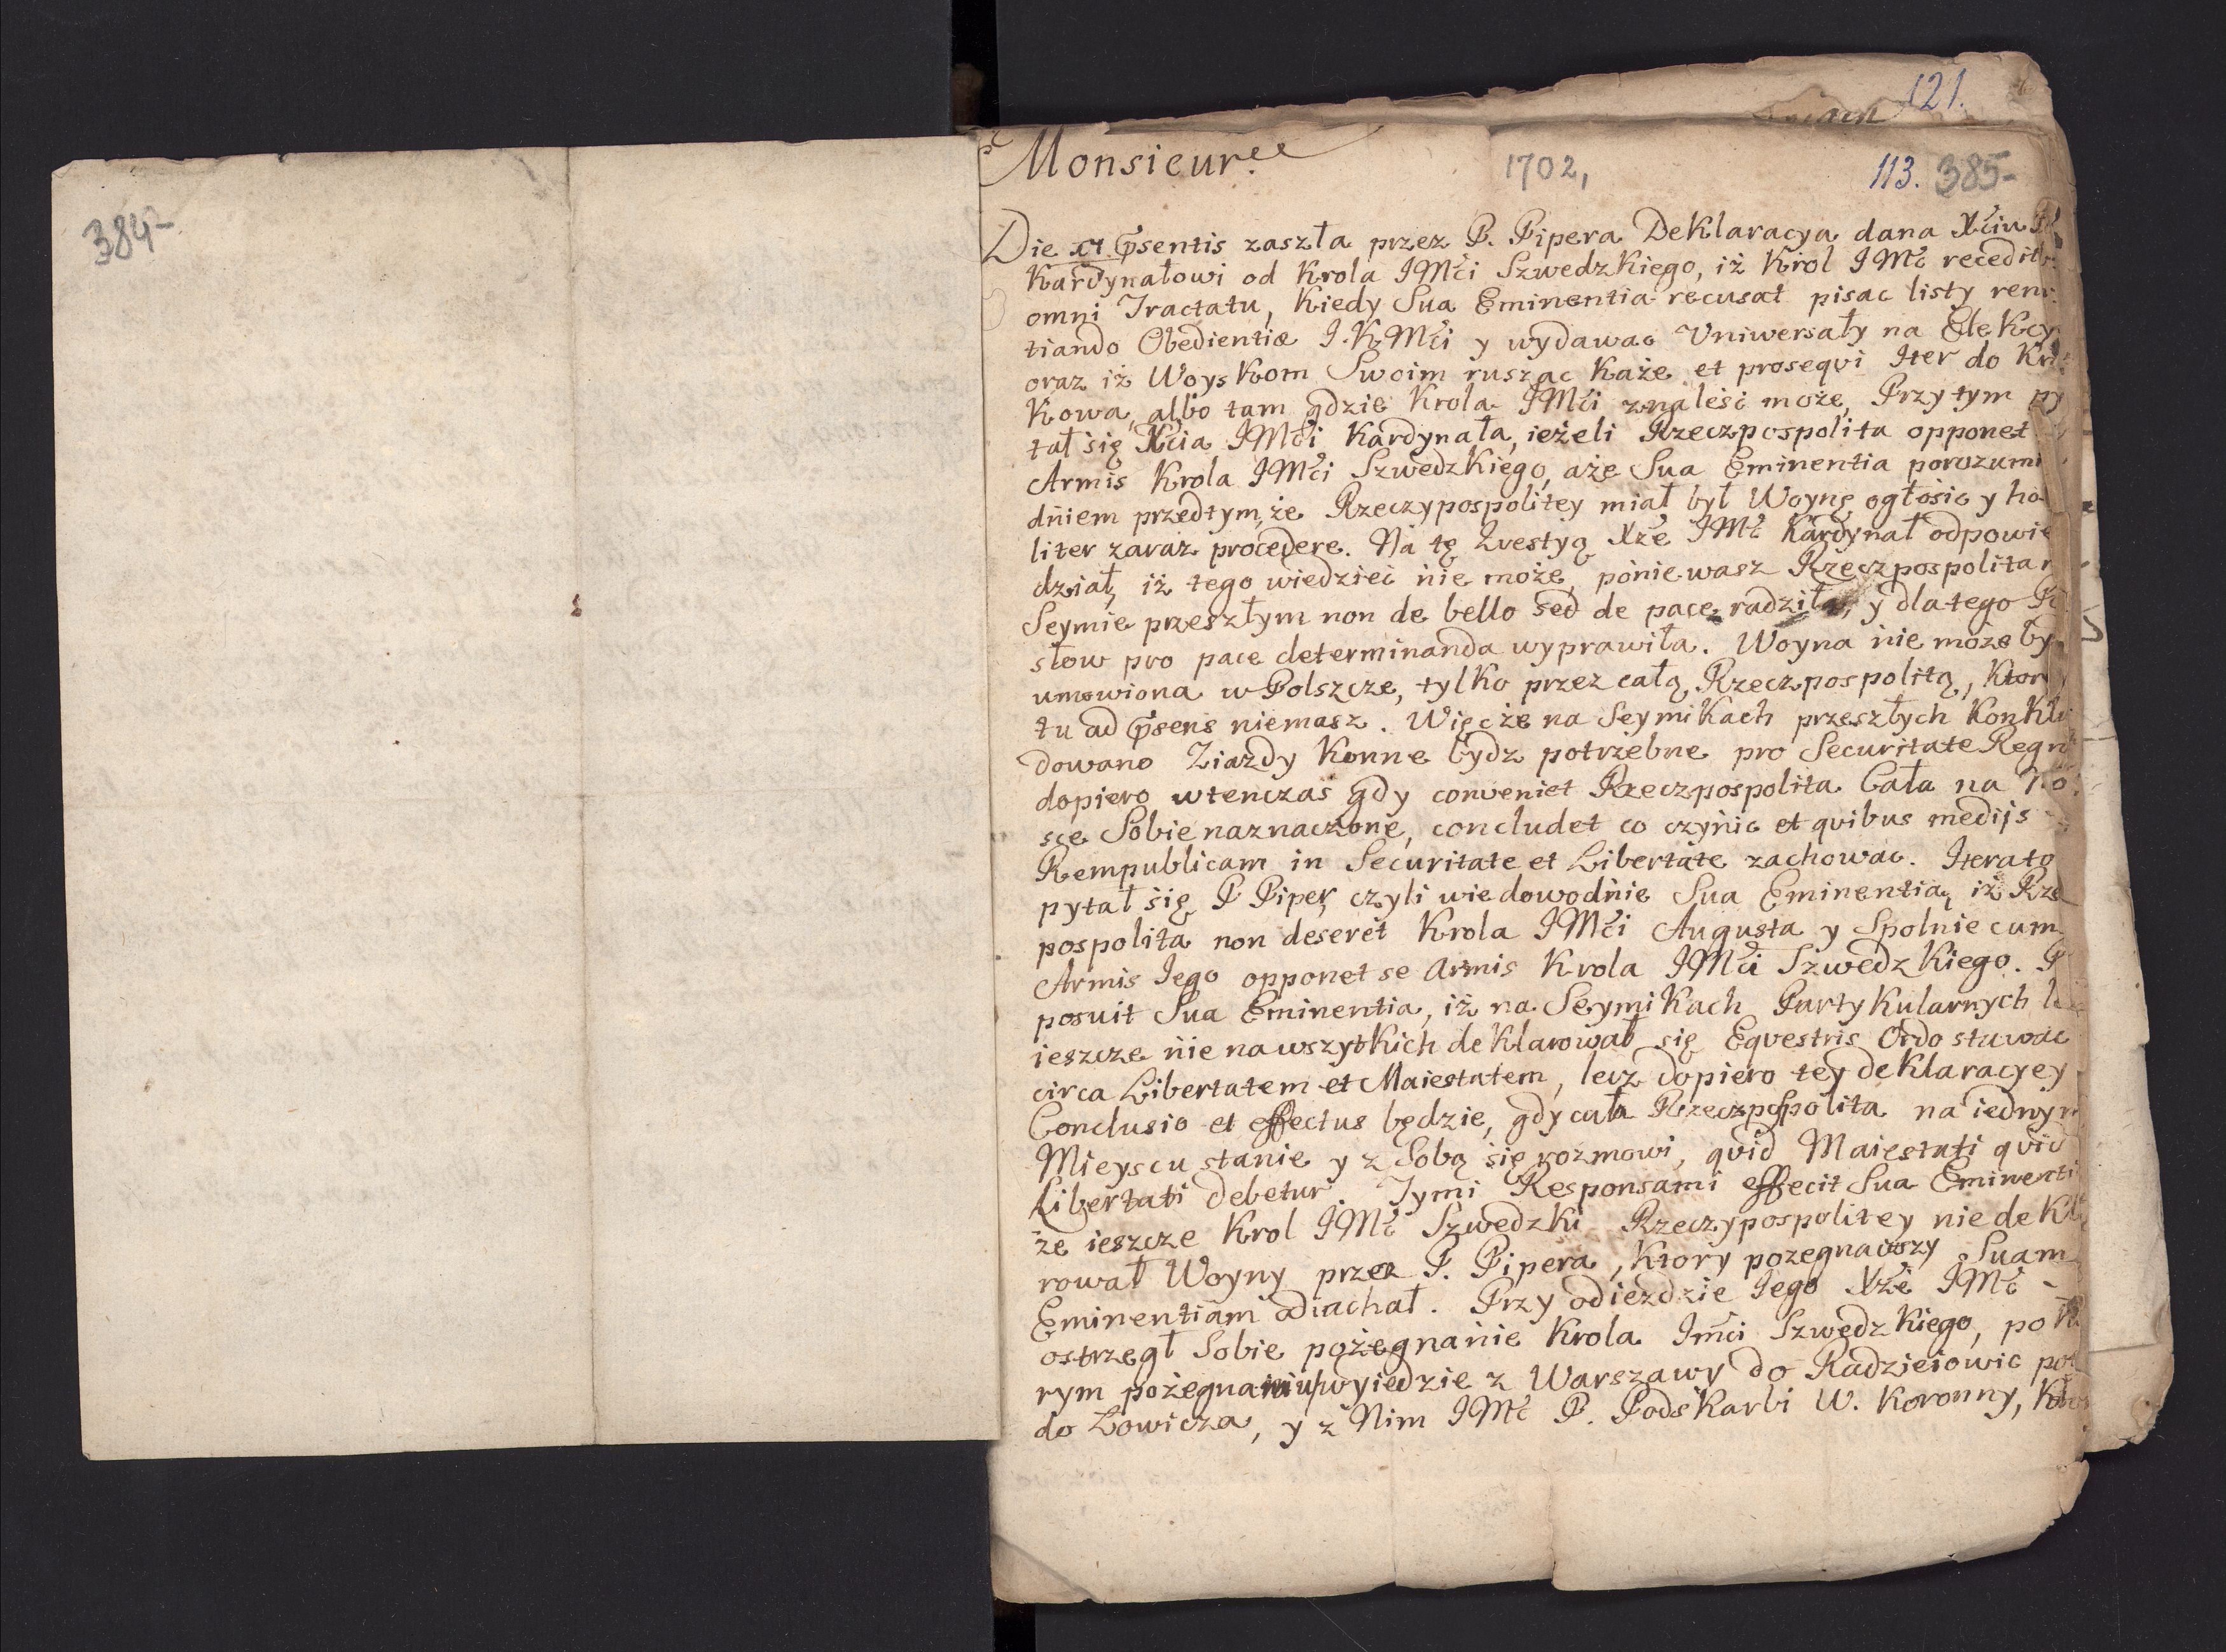 384-
121.
Monsieur.
1702,
113. 385-
Die xi. p̃sentis zaszła przez P. Pipera Deklaracya dana Xciu
Kardynałowi od Krola JMći Szwedzkiego, iż Krol JMć recedit
omni Tractatu, Kiedy Sua Eminentia recusat pisac listy ren
tiando Obedientiæ J.K.Mći y wydawac Uniwersały na Elekcy
oraz iż Woyskom Swoim ruszac każe et proseqvi Iter do Kra
Kowa, albo tam gdzie Krola JMći znaleść może, Przytym py
tał się Xcia JMći Kardynała, ieżeli Rzeczpospolita opponet
Armis Krola JMći Szwedzkiego, aże Sua Eminentia porozumi
dniem przedtym, że Rzeczypospolitey miał był Woynę ogłosic y ho
liter zaraz procedere. Na tę Qvestyą Xże JMć Kardynał odpowie
dział, iż tego wiedzieć nie może, poniewasz Rzeczpospolita n
Seymie przeszłym non de bello sed de pace radziła, y dlatego Po
słow pro pace determinanda wyprawiła. Woyna nie może by
umowiona w Polszcze, tylko przez całą Rzeczpospolitą, Ktor
tu ad p̃sens niemasz. Więc że na Seymikach przeszłych Konklu
dowano Ziazdy Konne bydz potrzebne pro Securitate Regni
dopiero wtenczas gdy conveniet Rzeczpospolita Cała na
sce Sobie naznaczone, concludet co czynic et qvibus medijs
Rempublicam in Securitate et Libertate zachowac. Iterato
pytał się P Piper, czyli wie dowodnie Sua Eminentia, iż Rze
pospolita non deseret Krola JMći Augusta y Spolnie cum
Armis Iego opponet se Armis Krola JMći Szwedzkiego. P
posuit Sua Eminentia, iż na Seymikach Partykularnych l
ieszcze nie na wszytkich deklarował się Eqvestris Ordo stawac
circa Libertatem et Maiestatem, lecz dopiero tey deklaracyey
Conclusio et effectus będzie, gdy cała Rzeczpospolita na iednym
Mieyscu stanie y z Sobą się rozmowi, qvid Maiestati qvid
Libertati debetur. Tymi Responsami effecit Sua Eminenti
że ieszcze Krol JMć Szwedzki Rzeczypospolitey nie dekla
rował Woyny przez P. Pipera, Ktory pozegnawszy Suam
Eminentiam odiachał. Przy odiezdzie Iego Xże JMć -
ostrzegł Sobie pożegnanie Krola Jmći Szwedzkiego, po Kto
rym pożegnaniu wyiedzie z Warszawy do Radzieiowic pot
do Łowicza, y z Nim JMć P. Podskarbi W. Koronny, Kto